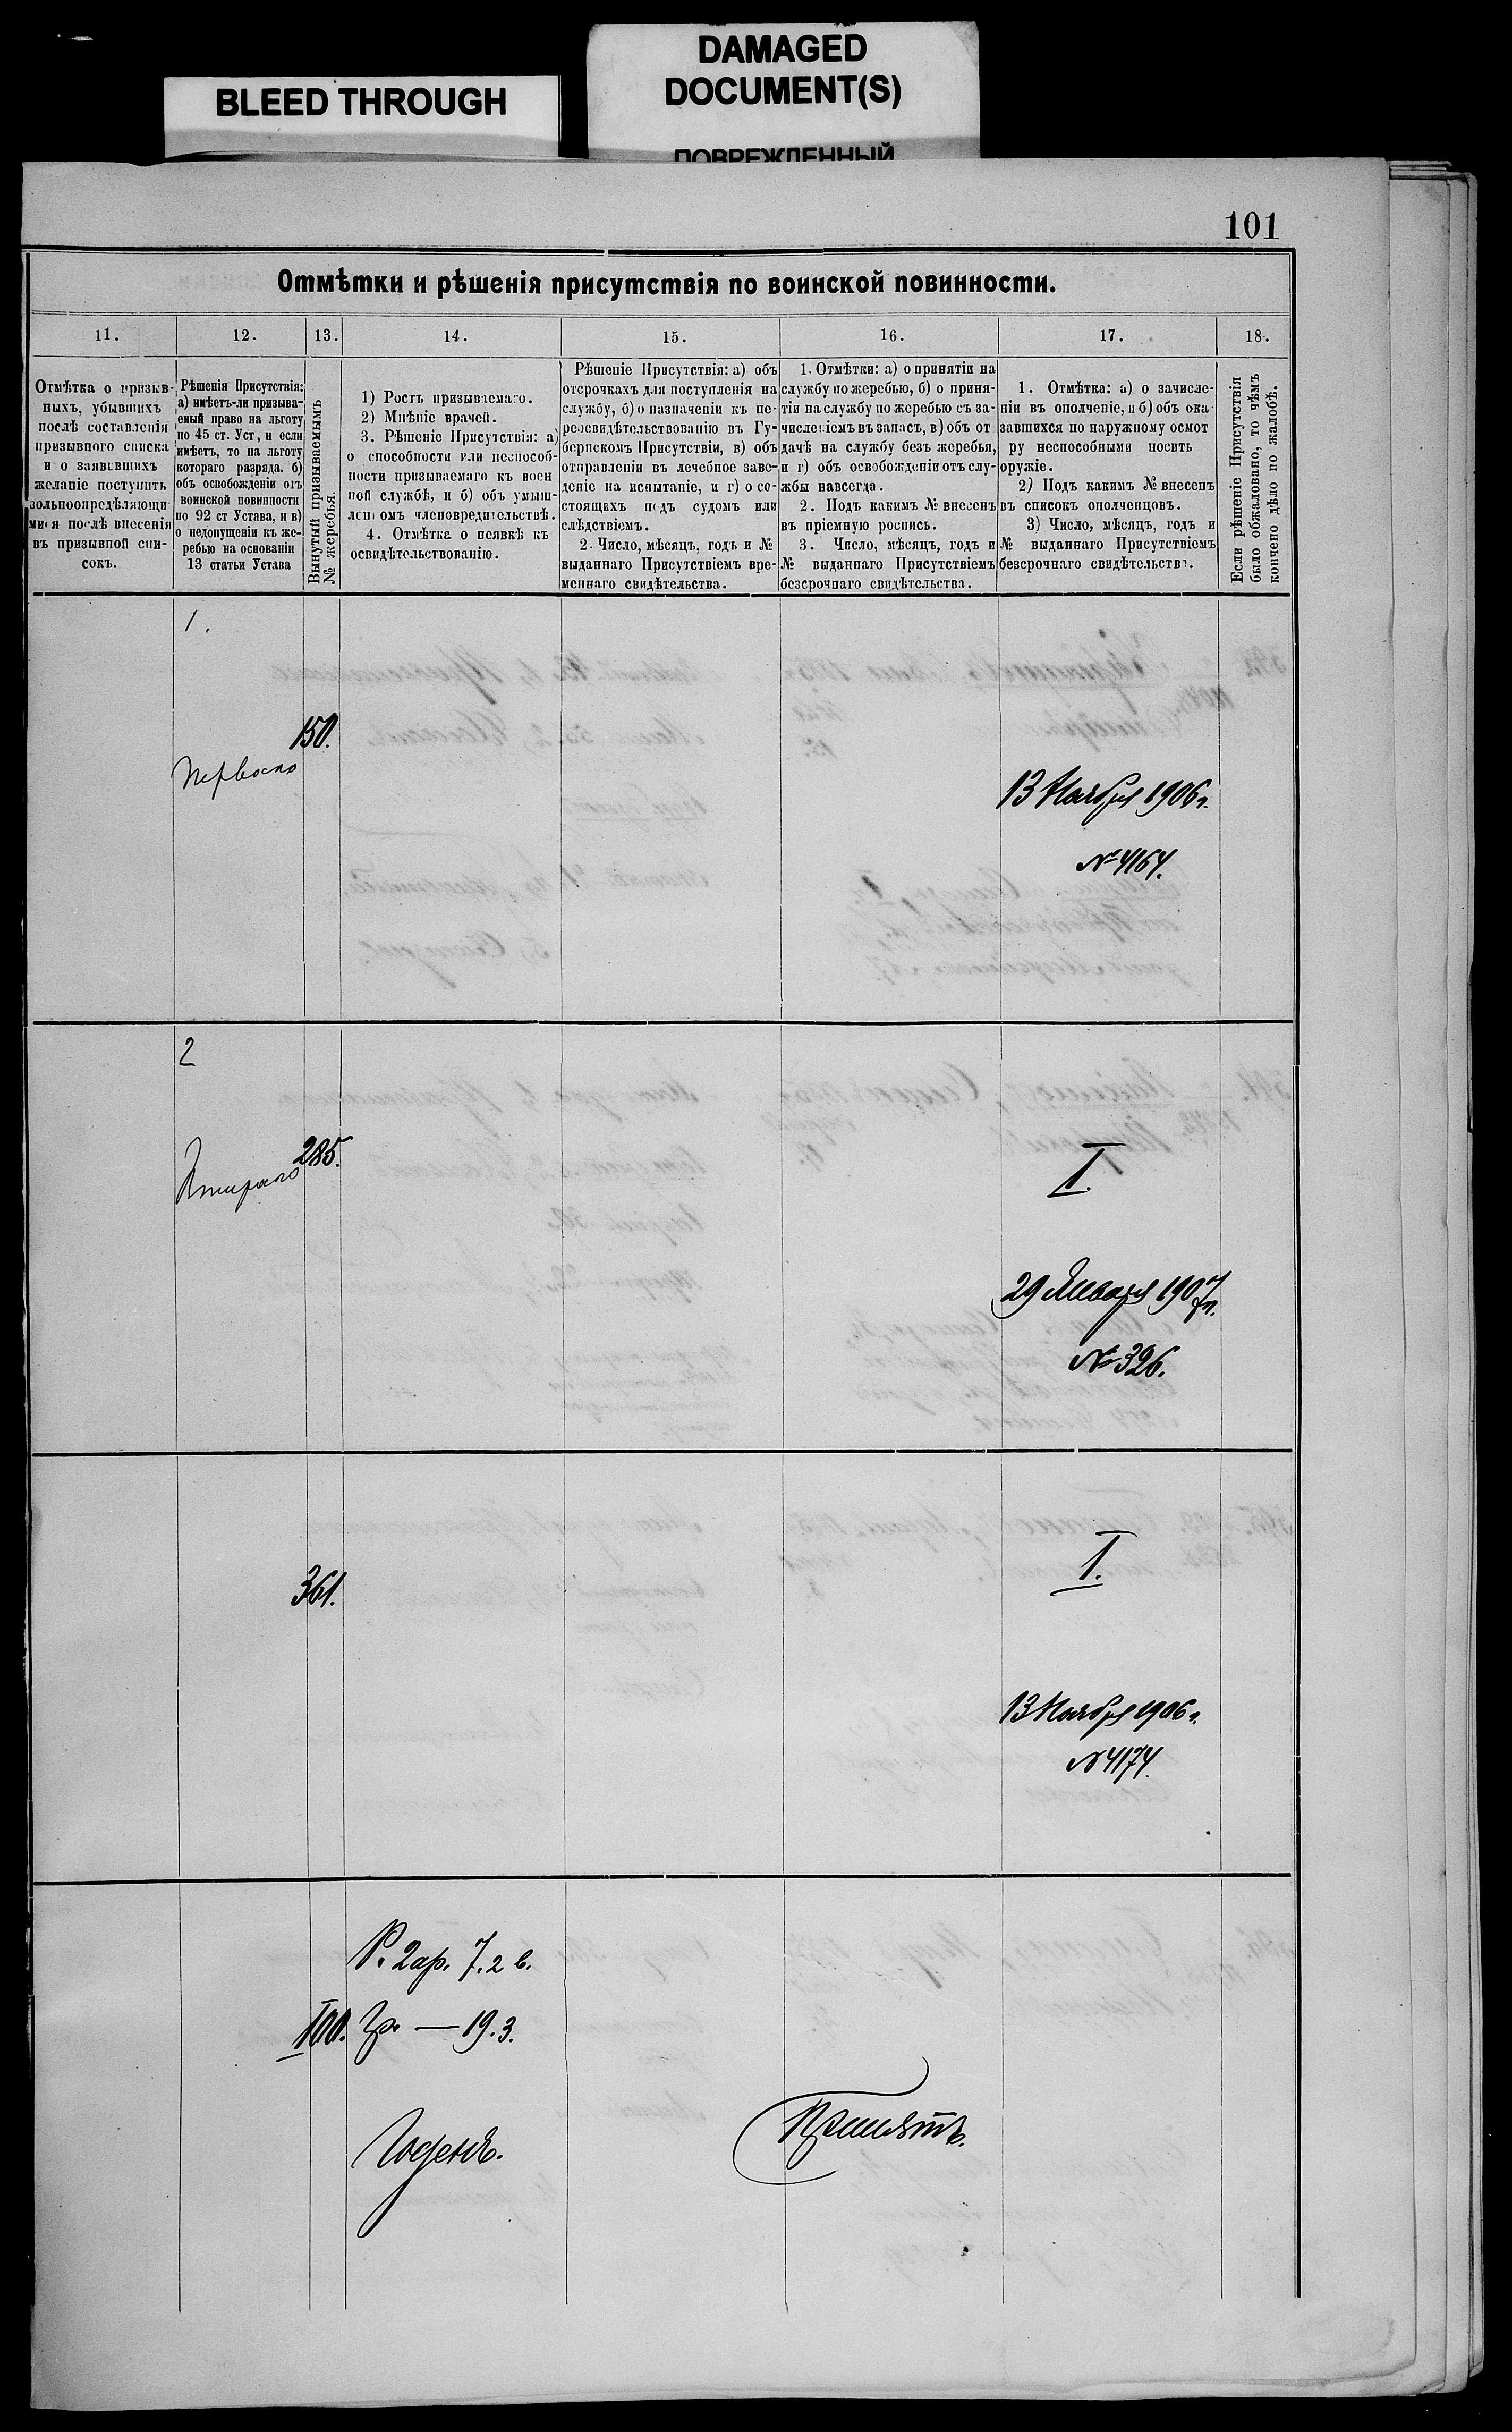 BLEED THROUGH
DAMAGED
DOCUMENT(S)
ПОВРЕЖДЕННЫЙ
101
Отмѣтки и рѣшенія присутствія по воинской повинности.
11.
12.
13.
14.
15.
16.
17.
18.
Отмѣтка о призыв-
ныхъ, убывшихъ
послѣ составленія
призывного списка
и о заявившихъ
желаніе поступить
вольноопредѣляющи
мися послѣ внесенія
въ призывной спи-
сокъ.
Рѣшенія Присутствія:
а) имѣетъ-ли призыва-
емый право на льготу
по 45 ст. Уст, и если
имѣетъ, то на льготу
котораго разряда. б)
объ освобожденіи отъ
воинской повинности
по 92 ст Устава, и в)
о недопущеніи къ же-
ребью на основаніи
13 статьи Устава
Вынутый призываемымъ
№ жеребья.
1) Ростъ призываемаго.
2) Мнѣніе врачей.
3. Рѣшеніе Присутствія: а)
о способности или неспособ-
ности призываемаго къ воен
ной службѣ, и б) объ умыш-
ленномъ членовредительствѣ.
4. Отмѣтка о неявкѣ къ
освидѣтельствованію.
Рѣшеніе Присутствія: а) объ
отсрочкахъ для поступленія на
службу, б) о назначеніи къ пе-
реосвидѣтельствованію въ Гу-
бернскомъ Присутствіи, в) объ
отправленіи въ лечебное заве-
деніе на испытаніе, и г) о со-
стоящихъ подъ судомъ или
слѣдствіемъ.
2. Число, мѣсяцъ, годъ и №
выданнаго Присутствіемъ вре-
меннаго свидѣтельства.
1. Отмѣтки: а) о принятіи на
службу по жеребью, б) о приня-
тіи на службу по жеребью съ за-
численіемъ въ запасъ, в) объ от
дачѣ на службу безъ жеребья,
и г) объ освобожденіи отъ слу-
жбы навсегда.
2. Подъ какимъ № внесенъ
въ пріемную роспись.
3. Число, мѣсяцъ, годъ и
№ выданнаго Присутствіемъ
безсрочнаго свидѣтельства.
1. Отмѣтка: а) о зачисле-
ніи въ ополченіе, и б) объ ока-
завшихся по наружному осмот
ру неспособными носить
оружіе.
2) Подъ какимъ № внесенъ
въ списокъ ополченцовъ.
3) Число, мѣсяцъ, годъ и
№ выданнаго Присутствіемъ
безсрочнаго свидѣтельства.
Если рѣшеніе Присутствія
было обжаловано, то чѣмъ
кончено дѣло по жалобѣ.
1.
150.
Перваго
13 Ноября 1906 г.
№ 4164.
2
285.
Втораго
I.
29 Января 1907 г.
№ 326.
361.
I.
13 Ноября 1906 г.
№ 4174.
Р. 2 ар. 7. 2 в.
100. Гр. — 19. 3.
Годенъ.
Принятъ.